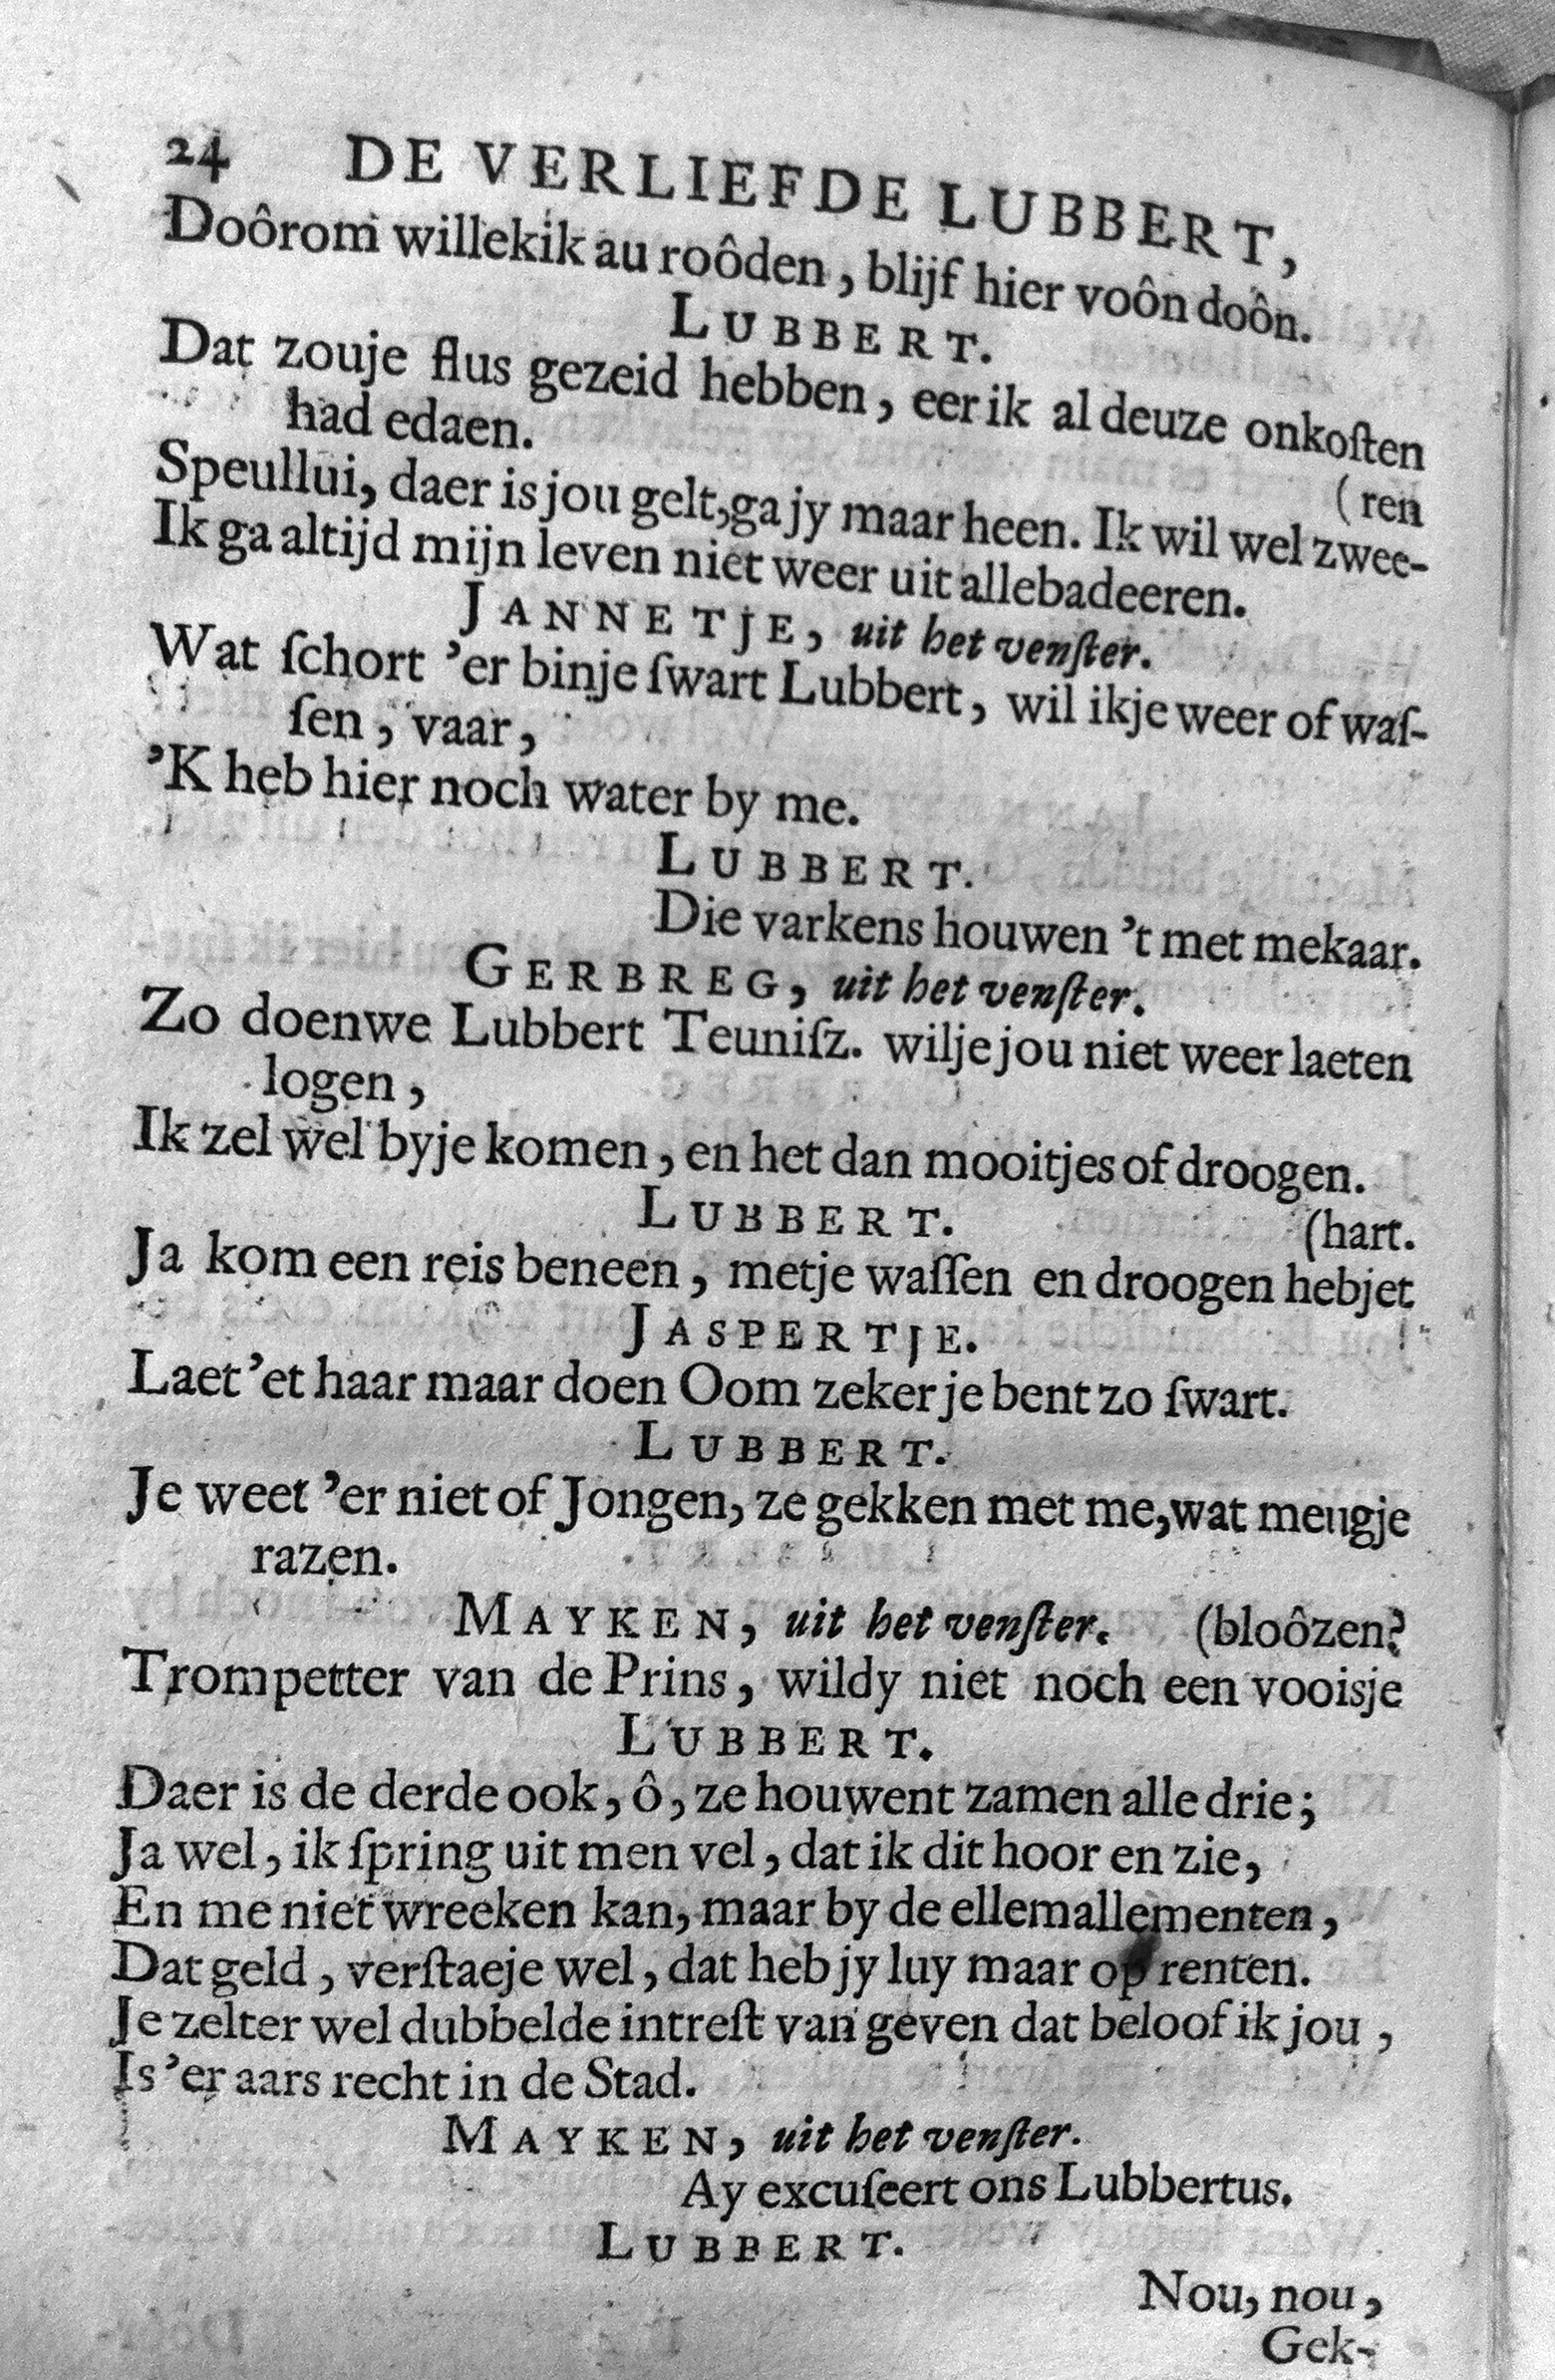 24 DE VERLIEFDE LUBBERT,
Doôrom willekik au roôden, blijf hier voôn doôn.
LUBBERT.
Dat zouje flus gezeid hebben, eer ik al deuze onkoſten
had edaen.
(ren
Speullui, daer is jou gelt, ga jy maar heen. Ik wil wel zwee-
Ik ga altijd mijn leven niet weer uit allebadeeren.
JANNETJE, uit het venſter.
Wat ſchort 'er binje ſwart Lubbert, wil ikje weer of waſ-
ſen, vaar,
'K heb hier noch water by me.
LUBBERT.
Die varkens houwen 't met mekaar.
GERBREG, uit het venſter.
Zo doenwe Lubbert Teuniſz. wilje jou niet weer laeten
logen,
Ik zel wel byje komen, en het dan mooitjes of droogen.
LUBBERT. (hart.
Ja kom een reis beneen, metje waſſen en droogen hebjet
JASPERTJE.
Laet 'et haar maar doen Oom zeker je bent zo ſwart.
LUBBERT.
Je weet 'er niet of Jongen, ze gekken met me, wat meugje
razen.
MAYKEN, uit het venſter. (bloôzen?
Trompetter van de Prins, wildy niet noch een vooisje
LUBBERT.
Daer is de derde ook, ô, ze houwent zamen alle drie;
Ja wel, ik ſpring uit men vel, dat ik dit hoor en zie,
En me niet wreeken kan, maar by de ellemallementen,
Dat geld, verſtaeje wel, dat heb jy luy maar op renten.
Je zelter wel dubbelde intreſt van geven dat beloof ik jou,
Is 'er aars recht in de Stad.
MAYKEN, uit het venſter.
Ay excuſeert ons Lubbertus.
LUBBERT.
Nou, nou,
Gek-